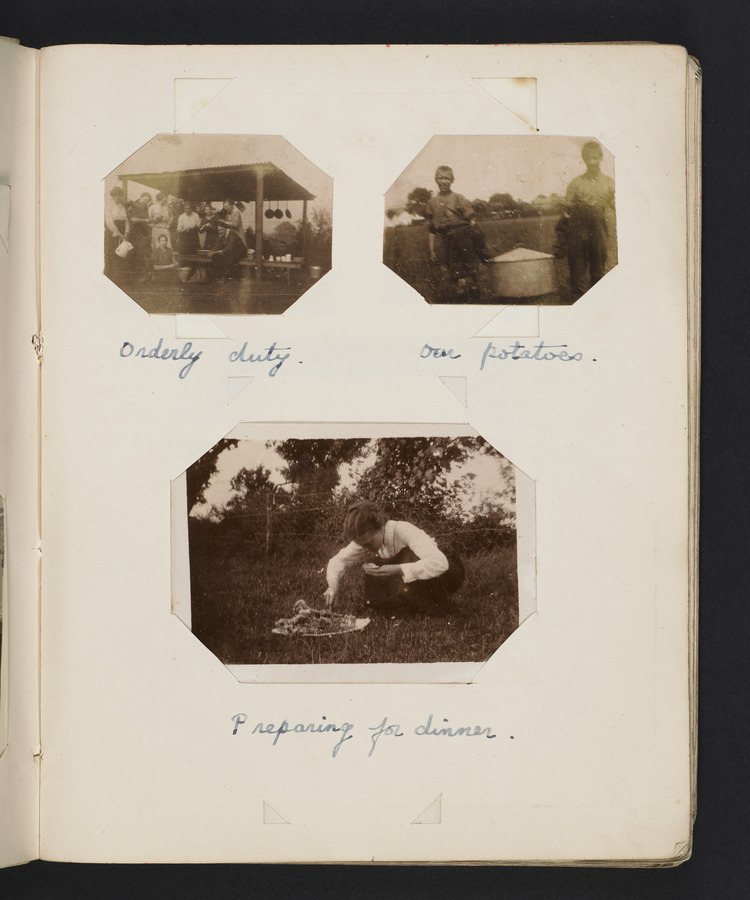 Orderly duty.
Our potatoes.
Preparing for dinner.